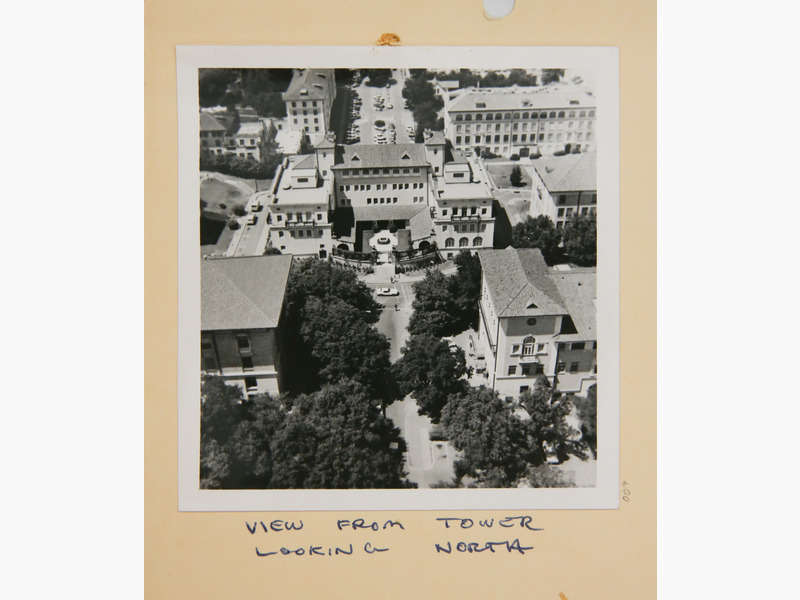 VIEW FROM TOWER
LOOKING NORTH
009